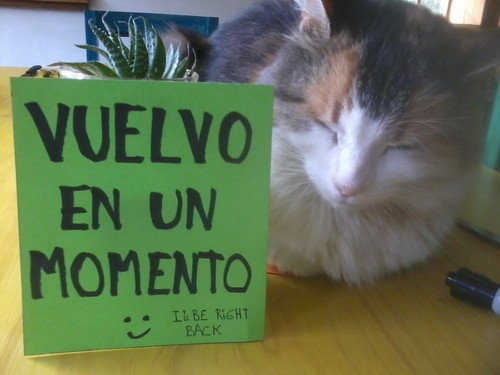 VUELVO
EN UN
MOMENTO
I'll BE RIGHT
BACK